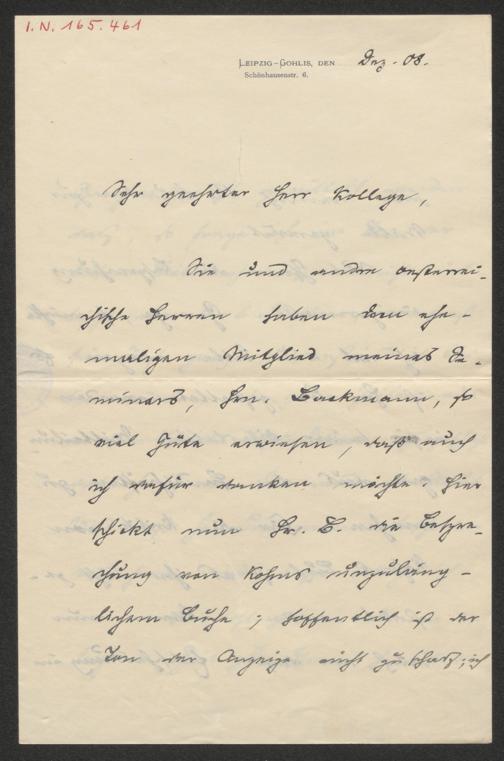 I.N. 165.461
LEIPZIG-GOHLIS, DEN Dez. 08.
Schönhausenstr. 6.
Sehr geehrter Herr Kollege,
Sie und andre oesterrei-
chische Herren haben dem ehe-
maligen Mitglied meines Se-
minars, Hrn. Backmann, so
viel Güte erwiesen, daß auch
ich dafür danken möchte. Hier
schickt nun Hr. B. die Bespre-
chung von Kohms unzuläng-
lichem Buche; hoffentlich ist der
Ton der Anzeige nicht zu scharf; ich